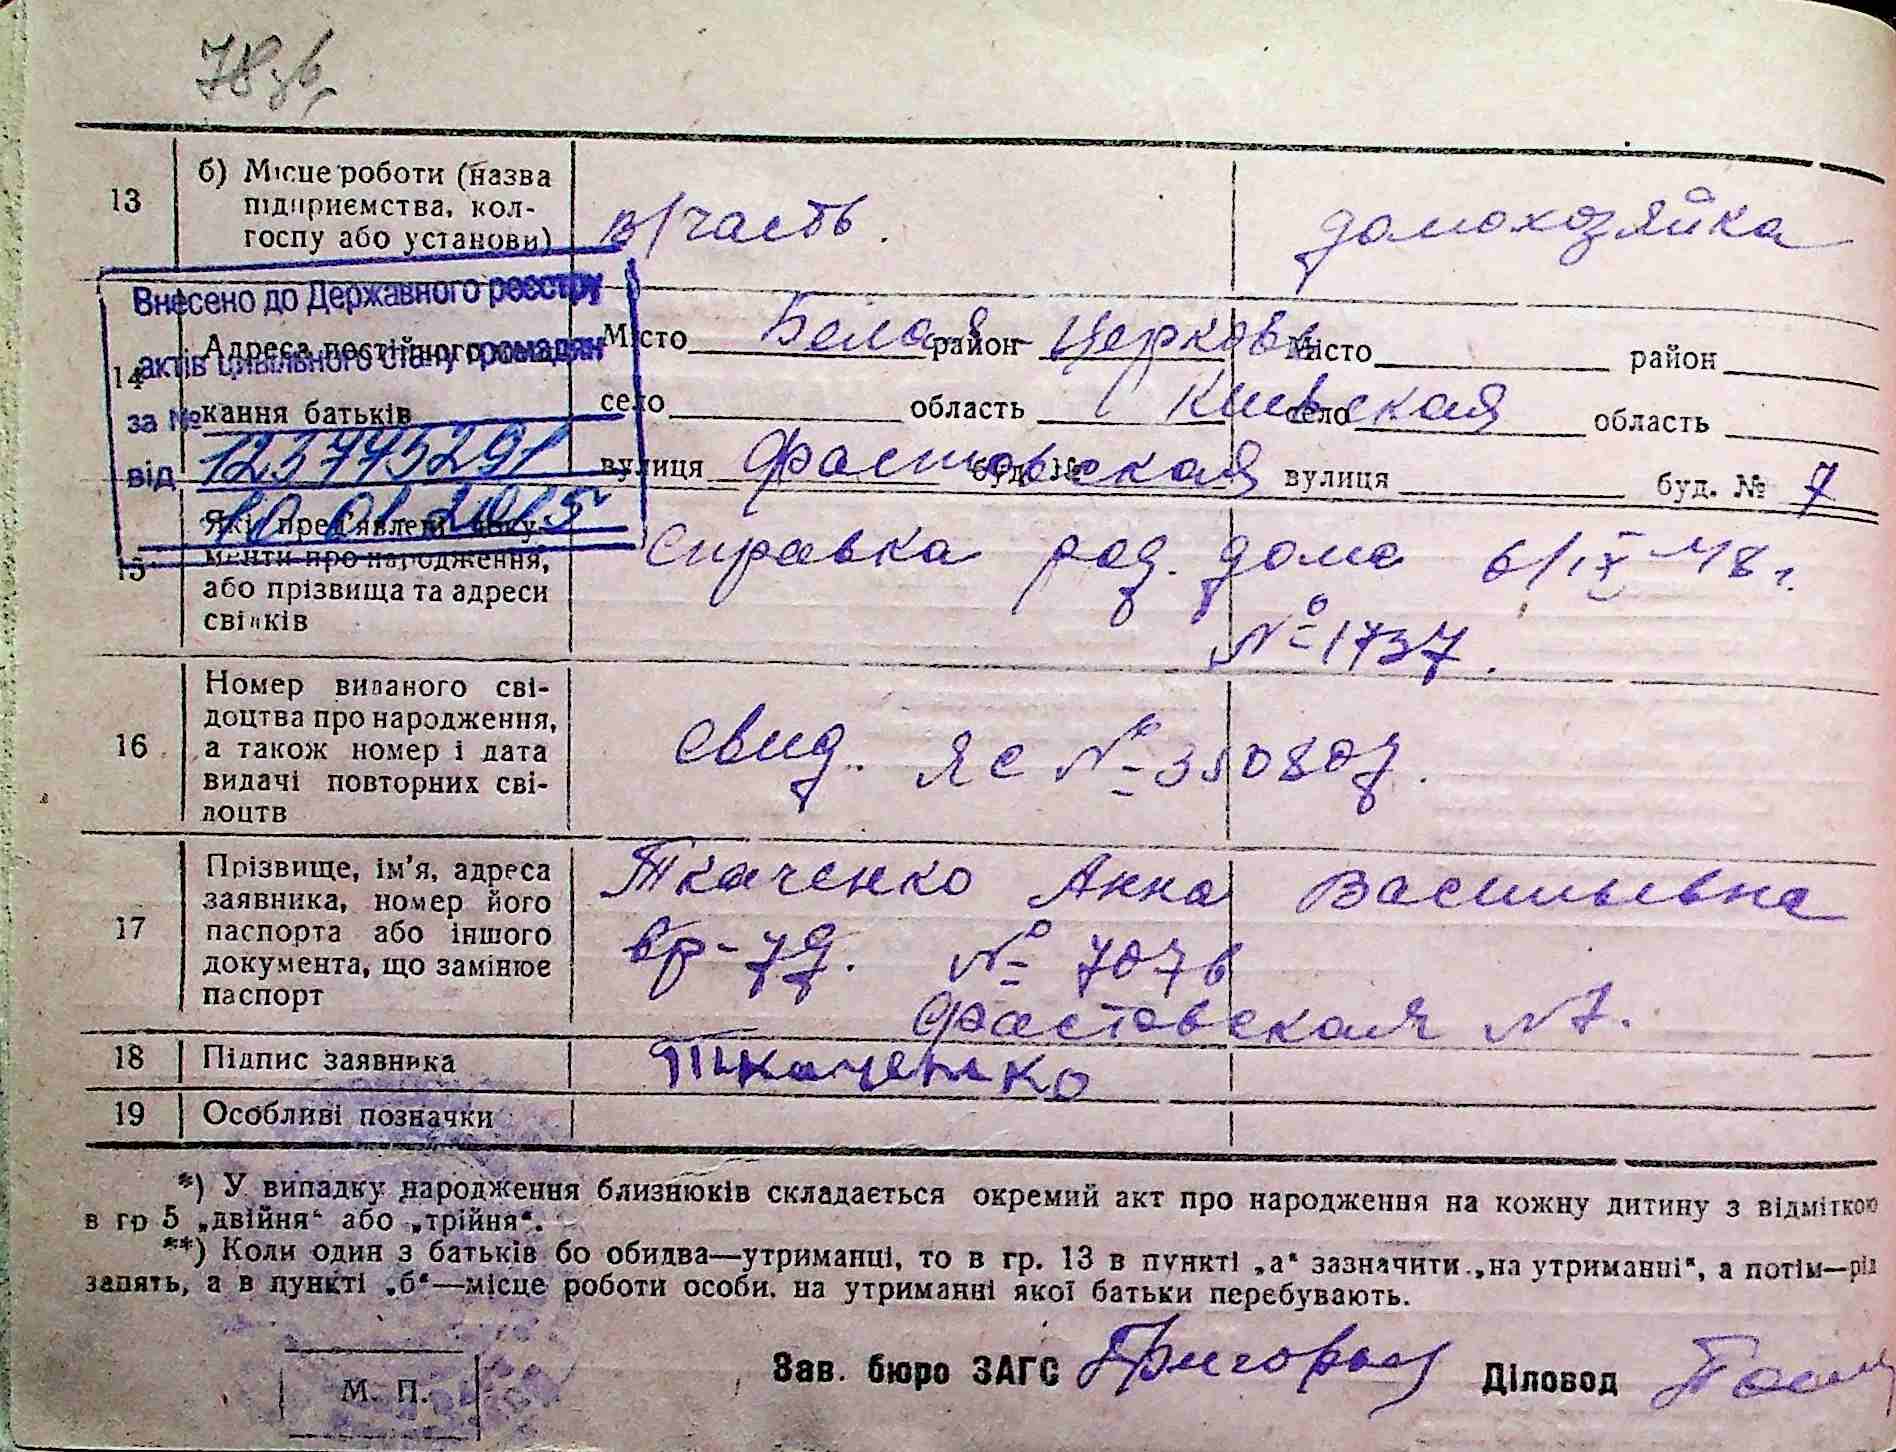 13
б) Місце роботи (назва
підприємства, кол-
госпу або установи)
в/часть.
домохозяйка
Внесено до Державного реєстру
актів цивільного стану громадян
за №
123775291
від
10 01 2015
14
Адреса постійного
кання батьків
Місто Белая район Церковь
село область Киевская
вулиця Фастовская буд. №
Місто район
село область
вулиця буд. № 7
15
Які пред'явлені доку-
менти про народження,
або прізвища та адреси
свідків
Справка род. дома 6/IX-48 г.
№ 1737.
16
Номер виданого сві-
доцтва про народження,
а також номер і дата
видачі повторних сві-
доцтв
свид. ЯС № 350807.
17
Прізвище, ім'я, адреса
заявника, номер його
паспорта або іншого
документа, що замінює
паспорт
Ткаченко Анна Васильевна
вр-уд. № 7076
Фастовская № 7.
18
Підпис заявника
Ткаченко
19
Особливі позначки
*) У випадку народження близнюків складається окремий акт про народження на кожну дитину з відміткою
в гр 5 „двійня“ або „трійня“.
**) Коли один з батьків бо обидва—утриманці, то в гр. 13 в пункті „а“ зазначити „на утриманні“, а потім—рід
занять, а в пункті „б“—місце роботи особи, на утриманні якої батьки перебувають.
М. П.
Зав. бюро ЗАГС
Діловод